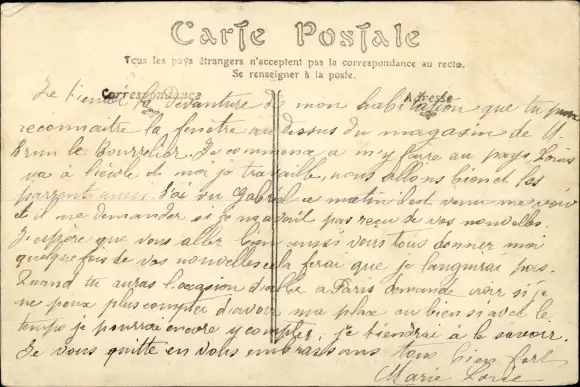 Carte Postale
Tous les pays étrangers n'acceptent pas la correspondance au recto.
Se renseigner à la poste.
Correspondance
Adresse
la devanture de mon habitation que tu peux
reconnaitre la fenêtre au dessus du magasin de
Brun le Bourrelier. Je commence a m'y faire au pays, Louis
va à l'école et moi je travaille, nous allons bien et les
parrent aussi. J'ai vu Gabriel ce matin il est venu me voir
et il me demander si je n'avait pas reçu de vos nouvelles.
J'espère que vous aller bien aussi vous tous donner moi
quelque fois de vos nouvelles cela ferai que je languirai pas.
Quand tu auras l'occasion d'aller a Paris demande voir si je
ne peux plus compter d'avoir ma place ou bien si avec le
temps je pourrai encore y compter, je tiendrai à le savoir.
Je vous quitte en vous embrassons tous bien fort
Marie Lorie